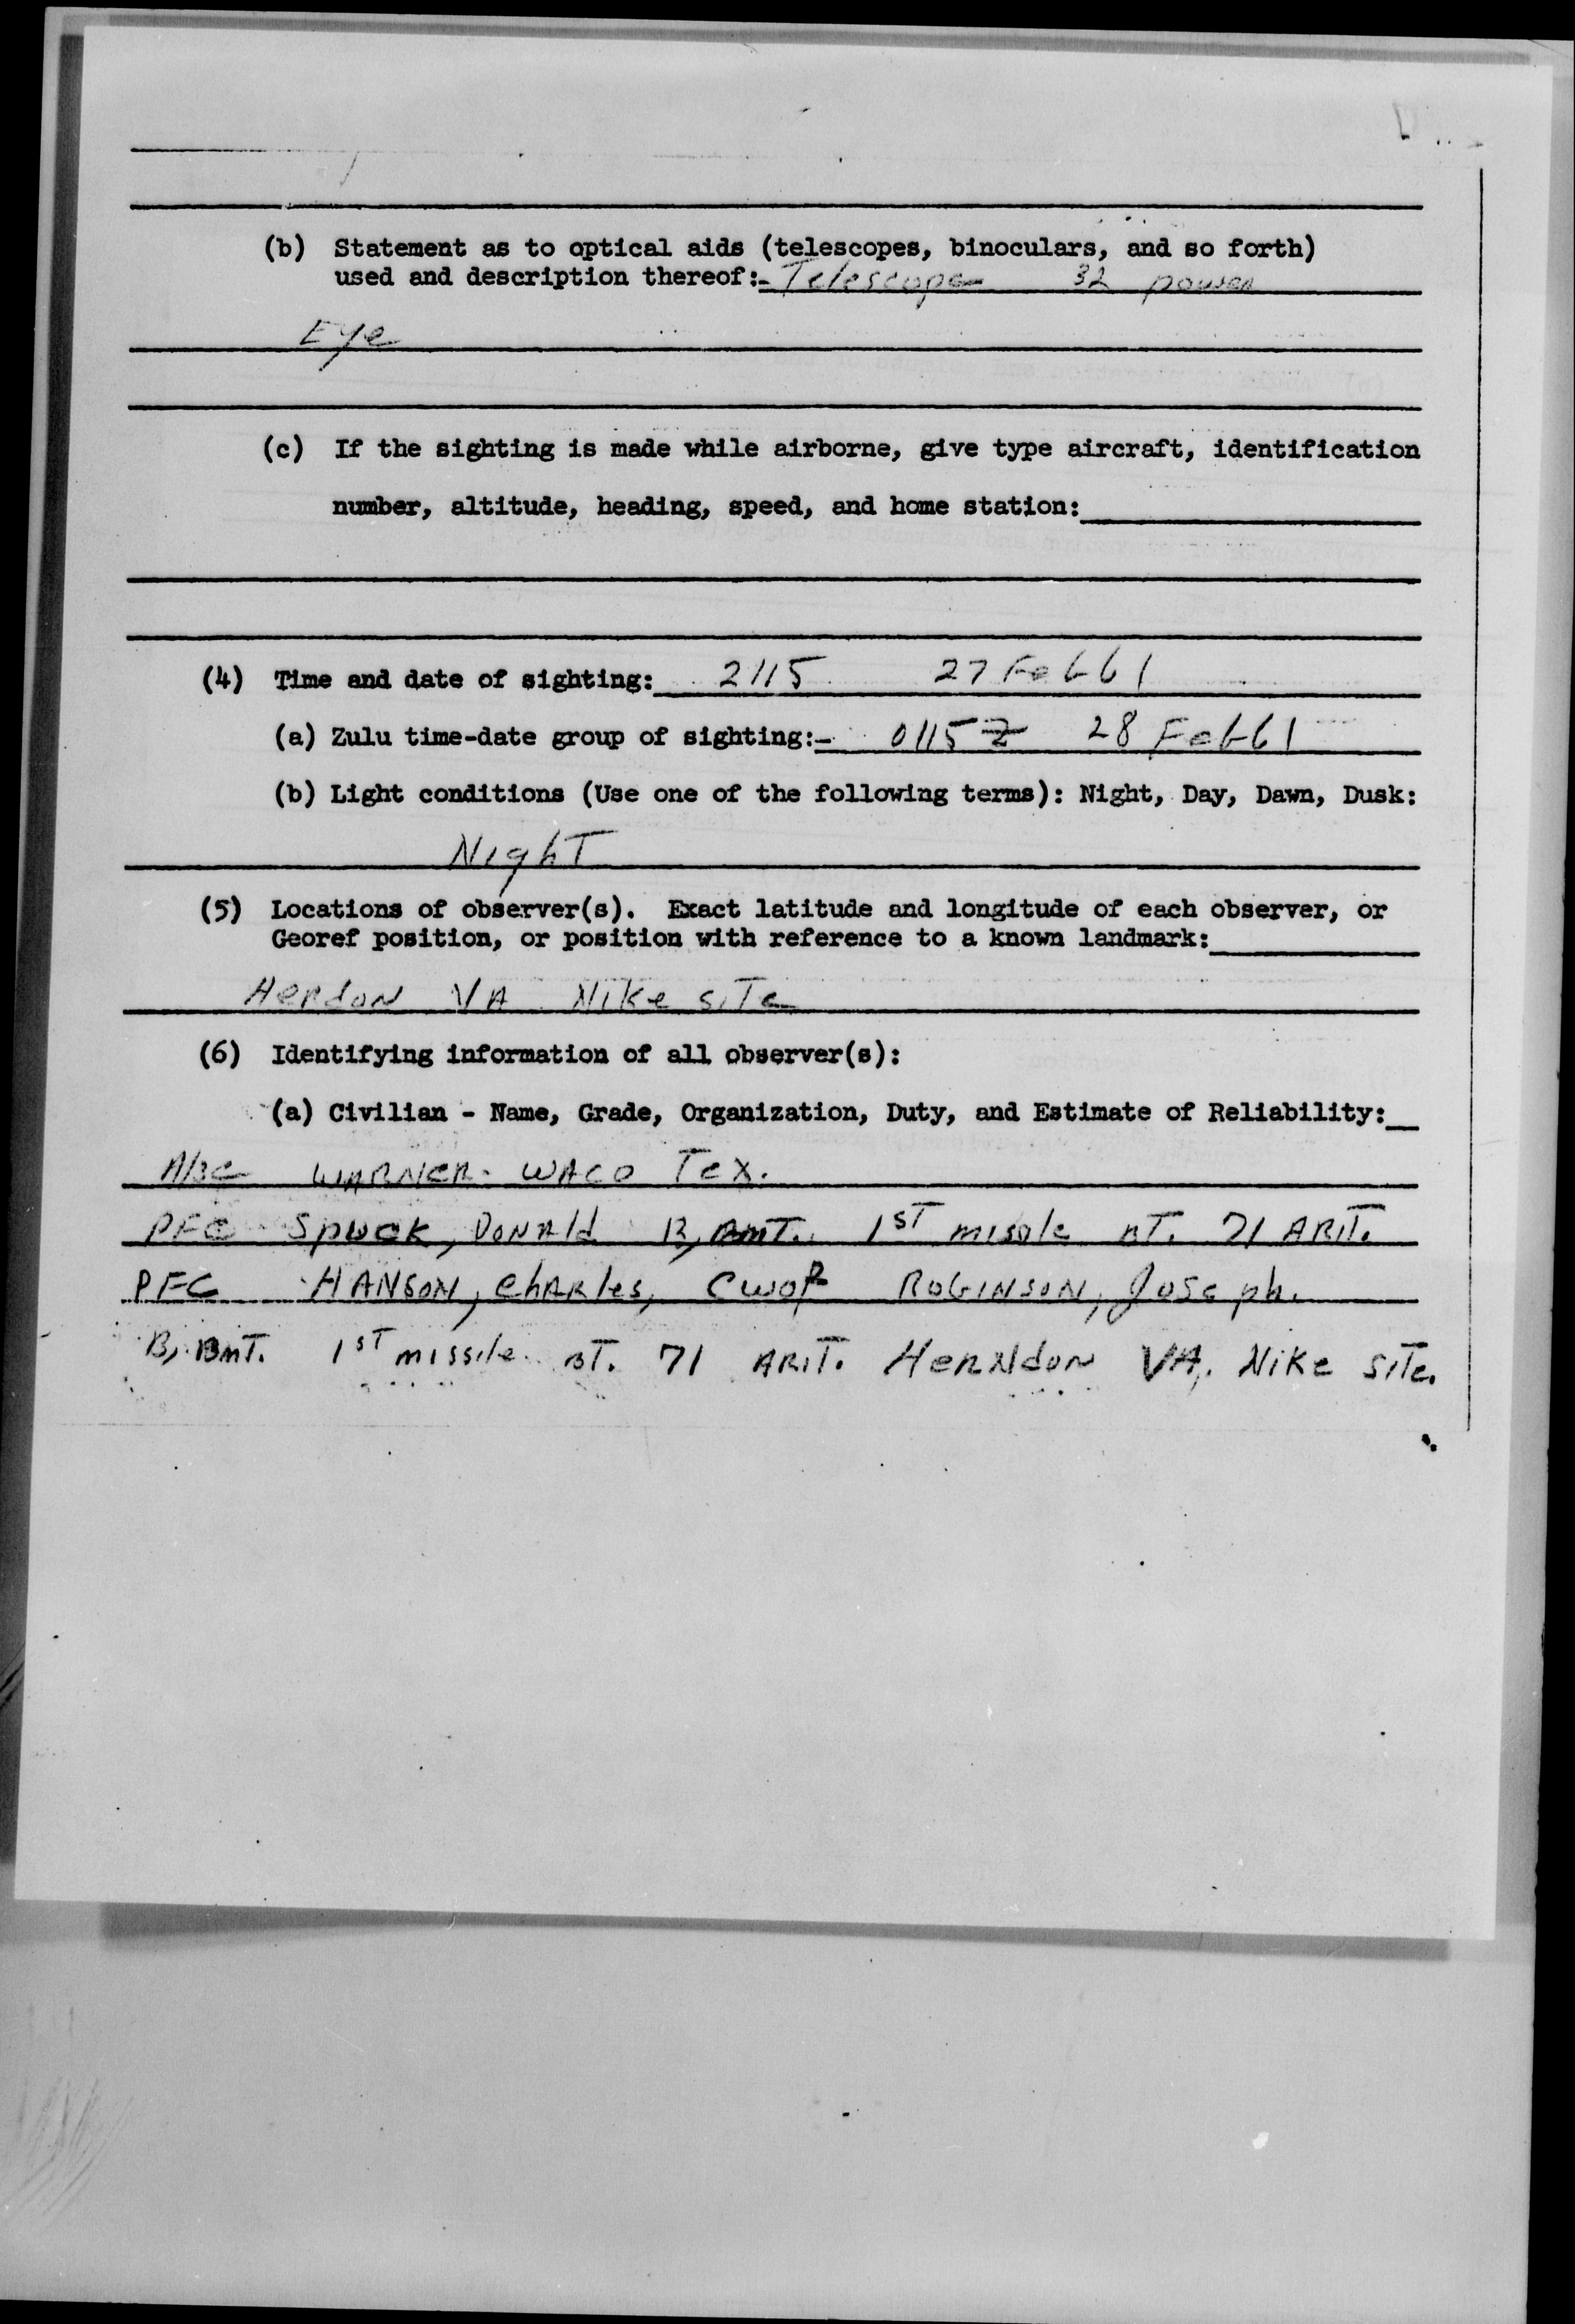 (b) Statement as to optical aids (telescopes, binoculars, and so forth)
used and description thereof:- Telescope 32 power
Eye
(c) If the sighting is made while airborne, give type aircraft, identification
number, altitude, heading, speed, and home station:
(4) Time and date of sighting: 2115 27 Feb 61
(a) Zulu time-date group of sighting:- 0115Z 28 Feb 61
(b) Light conditions (Use one of the following terms): Night, Day, Dawn, Dusk:
Night
(5) Locations of observer(s). Exact latitude and longitude of each observer, or
Georef position, or position with reference to a known landmark:
Herdon VA Nike site
(6) Identifying information of all observer(s):
(a) Civilian - Name, Grade, Organization, Duty, and Estimate of Reliability:
WARNER - WACO Tex.
PFC Donald B, BmT. 1st misole BT. 71 ARIT.
PFC HANSON, Charles, ROBINSON, Joseph.
B, BmT. 1st missile BT. 71 ARIT. HerNdon VA. Nike site.